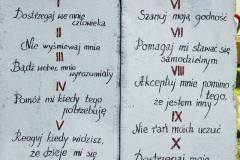 I
Dostrzegaj we mnie
człowieka
II
Nie wyśmiewaj mnie
III
Bądź wobec mnie
wyrozumiały
IV
Pomóż mi kiedy tego
potrzebuję
V
Reaguj kiedy widzisz,
że dzieje mi się
VI
Szanuj moją godność
VII
Pomagaj mi stawać się
samodzielnym
VIII
Akceptuj mnie pomimo
tego,
że jestem inny
IX
Nie rań moich uczuć
X
Dostrzegaj moje